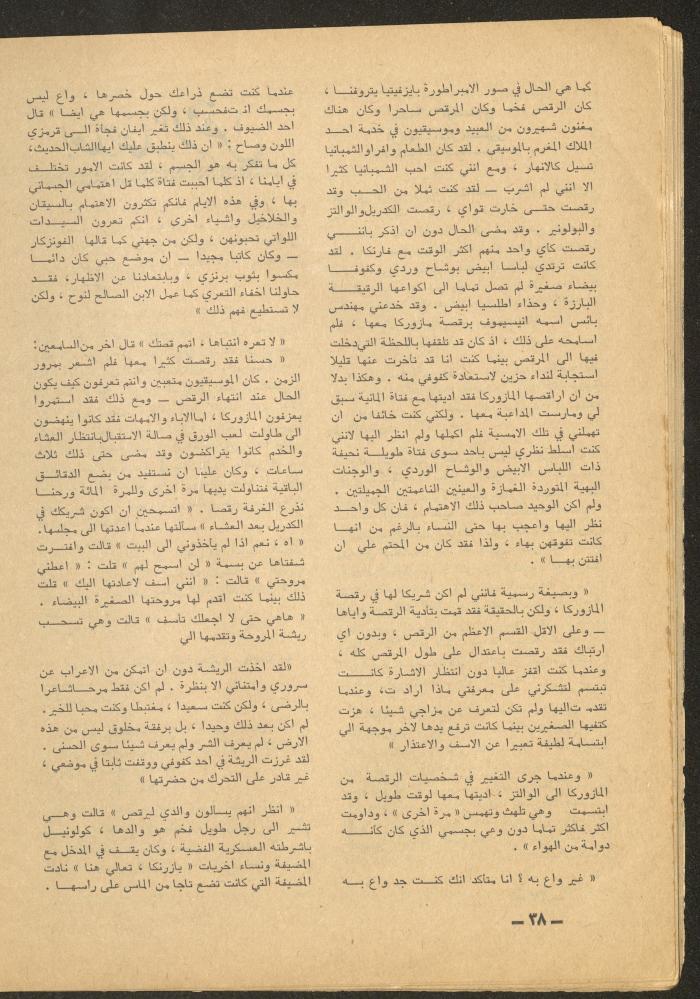 كما هي الحال في صور الامبراطورة بايزفيتيا بتروفنا ،
كان الرقص فخما وكان المرقص ساحرا وكان هناك
مغنون شهيرون من العبيد وموسيقيون في خدمة احد
الملاك المغرم بالموسيقى . لقد كان الطعام وافرا والشمبانيا
تسيل كالانهار ، ومع انني كنت احب الشمبانيا كثيرا
الا انني لم اشرب — لقد كنت ثملا من الحب وقد
رقصت حتى خارت قواي ، رقصت الكدريل والوالتز
والبولونيز . وقد مضى الحال دون ان اذكر بانني
رقصت كأي واحد منهم اكثر الوقت مع فارنكا . لقد
كانت ترتدي لباسا ابيض بوشاح وردي وكفوفا
بيضاء صغيرة لم تصل تماما الى اكواعها الرقيقة
البارزة ، وحذاء اطلسيا ابيض . وقد خدعني مهندس
بائس اسمه انيسيموف برقصة مازوركا معها ، فلم
اسامحه على ذلك ، اذ كان قد تلقفها باللحظة التي دخلت
فيها الى المرقص بينما كنت انا قد تأخرت عنها قليلا
استجابة لنداء حزين لاستعادة كفوفي منه . وهكذا بدلا
من ان اراقصها المازوركا فقد اديتها مع فتاة المانية سبق
لي ومارست المداعبة معها . ولكني كنت خائفا من ان
تهملني في تلك الامسية فلم اكملها ولم انظر اليها لانني
كنت اسلط نظري ليس باحد سوى فتاة طويلة نحيفة
ذات اللباس الابيض والوشاح الوردي ، والوجنات
البهية المتوردة الغمازة والعينين الناعمتين الجميلتين .
ولم اكن الوحيد صاحب ذلك الاهتمام ، فان كل واحد
نظر اليها واعجب بها حتى النساء بالرغم من انها
كانت تفوقهن بهاء ، ولذا فقد كان من المحتم علي ان
افتتن بها » .
« وبصيغة رسمية فانني لم اكن شريكا لها في رقصة
المازوركا ، ولكن بالحقيقة فقد قمت بتأدية الرقصة واياها
— وعلى الاقل القسم الاعظم من الرقص ، وبدون اي
ارتباك فقد رقصت باعتدال على طول المرقص كله ،
وعندما كنت اقفز عاليا دون انتظار الاشارة كانت
تبتسم لتشكرني على معرفتي ماذا اراد ت، وعندما
تقدمت اليها ولم تكن لتعرف عن مزاجي شيئا ، هزت
كتفيها الصغيرين بينما كانت ترفع يدها لاخر موجهة الي
ابتسامة لطيفة تعبيرا عن الاسف والاعتذار »
« وعندما جرى التغيير في شخصيات الرقصة من
المازوركا الى الوالتز ، اديتها معها لوقت طويل ، وقد
ابتسمت وهي تلهث وتهمس « مرة اخرى » ، وداومت
اكثر فأكثر تماما دون وعي بجسمي الذي كان كأنه
دوامة من الهواء » .
« غير واع به ؟ انا متأكد انك كنت جد واع به
عندما كنت تضع ذراعك حول خصرها ، واع ليس
بجسمك انت فحسب ، ولكن بجسمها هي ايضا » قال
احد الضيوف . وعند ذلك تغير ايفان فجأة الى قرمزي
اللون وصاح : « ان ذلك ينطبق عليك ايها الشاب الحديث،
كل ما تفكر به هو الجسم ، لقد كانت الامور تختلف
في ايامنا ، اذ كلما احببت فتاة كلما قل اهتمامي الجسماني
بها ، وفي هذه الايام فانكم تكثرون الاهتمام بالسيقان
والخلاخيل واشياء اخرى ، انكم تعرون السيدات
اللواتي تحبونهن ، ولكن من جهتي كما قالها الفونزكار
— وكان كاتبا مجيدا — ان موضع حبي كان دائما
مكسوا بثوب برنزي ، وبابتعادنا عن الاظهار، فقد
حاولنا اخفاء التعري كما عمل الابن الصالح لنوح ، ولكن
لا تستطيع فهم ذلك »
« لا تعره انتباها ، اتمم قصتك » قال اخر من السامعين:
« حسنا فقد رقصت كثيرا معها فلم اشعر بمرور
الزمن . كان الموسيقيون متعبين وانتم تعرفون كيف يكون
الحال عند انتهاء الرقص — ومع ذلك فقد استمروا
يعزفون المازوركا ، اما الاباء والامهات فقد كانوا ينهضون
الى طاولت لعب الورق في صالة الاستقبال بانتظار العشاء
والخدم كانوا يتراكضون وقد مضى حتى ذلك ثلاث
ساعات ، وكان علينا ان نستفيد من بضع الدقائق
الباقية فتناولت يديها مرة اخرى وللمرة المائة ورحنا
نذرع الغرفة رقصا . « اتسمحين ان اكون شريكك في
الكدريل بعد العشاء » سألتها عندما اعدتها الى مجلسها.
« اه ، نعم اذا لم يأخذوني الى البيت » قالت وافترت
شفتاها عن بسمة « لن اسمح لهم » قلت : « اعطني
مروحتي » قالت : « انني اسف لاعادتها اليك » قلت
ذلك بينما كنت اقدم لها مروحتها الصغيرة البيضاء .
« هاهي حتى لا اجعلك تأسف » قالت وهي تسحب
ريشة المروحة وتقدمها الي
«لقد اخذت الريشة دون ان اتمكن من الاعراب عن
سروري وامتناني الا بنظرة . لم اكن فقط مرحا شاعرا
بالرضى ، ولكن كنت سعيدا ، مغتبطا وكنت محبا للخير.
لم اكن بعد ذلك وحيدا ، بل برفقة مخلوق ليس من هذه
الارض ، لم يعرف الشر ولم يعرف شيئا سوى الحسنى .
لقد غرزت الريشة في احد كفوفي ووقفت ثابتا في موضعي ،
غير قادر على التحرك من حضرتها »
« انظر انهم يسألون والدي ليرقص » قالت وهي
تشير الى رجل طويل فخم هو والدها ، كولونيل
باشرطته العسكرية الفضية ، وكان يقف في المدخل مع
المضيفة ونساء اخريات « يازرنكا ، تعالي هنا » نادت
المضيفة التي كانت تضع تاجا من الماس على راسها .
— ٣٨ —